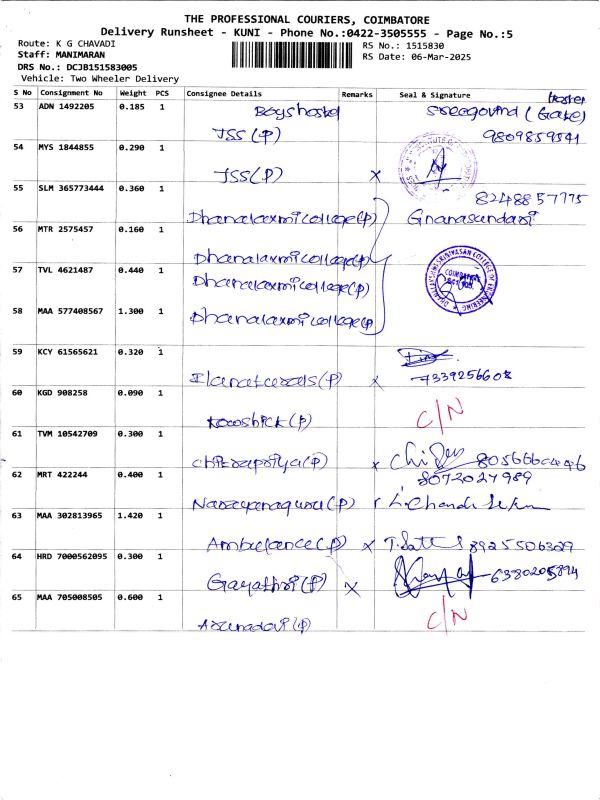 THE PROFESSIONAL COURIERS, COIMBATORE
Delivery Runsheet - KUNI - Phone No.:0422-3505555 - Page No.:5
Route: K G CHAVADI
Staff: MANIMARAN
DRS No.: DCJB151583005
Vehicle: Two Wheeler Delivery
RS No.: 1515830
RS Date: 06-Mar-2025
S No Consignment No Weight PCS Consignee Details Remarks Seal & Signature
53 ADN 1492205 0.185 1 Boys hostel
JSS (P) 9809859541
54 MYS 1844855 0.290 1
JSS (P) x
55 SLM 365773444 0.360 1 8248857775
Dhanalaxmi college (P) Gnanasundari
56 MTR 2575457 0.160 1
Dhanalaxmi college (P)
57 TVL 4621487 0.440 1 Dhanalaxmi college (P)
COIMBATORE
58 MAA 577408567 1.300 1 Dhanalaxmi college (P)
59 KCY 61565621 0.320 1
(P) x 7339256608
60 KGD 908258 0.090 1 C/N
Kowshick (P)
61 TVM 10542709 0.300 1
(P) x
8072027989
62 MRT 422244 0.400 1
Narayanaguru (P)
63 MAA 302813965 1.420 1
Ambulance (P) x 8925506329
64 HRD 7000562095 0.300 1
Gayathri (P) x 6380205894
65 MAA 705008505 0.600 1 C/N
(P)